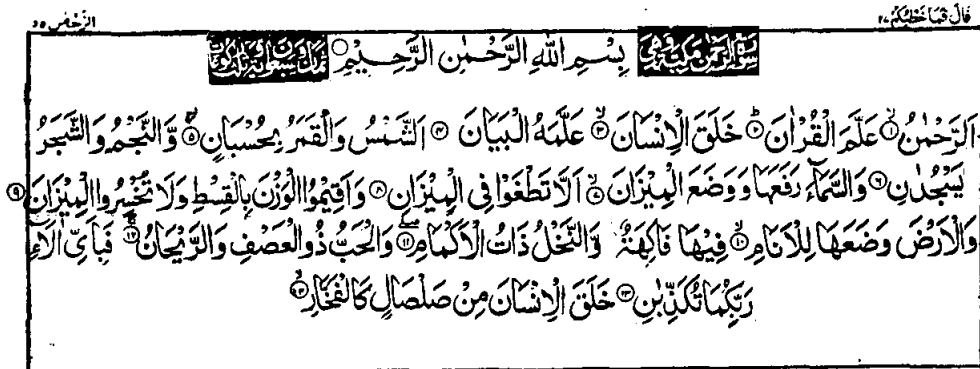 قال فما خطبكم ٢٧
الرحمن ٥٥
سورة الرحمن مكية وهى بِسْمِ اللهِ الرَّحْمٰنِ الرَّحِيْمِ
اَلرَّحْمٰنُ ۝١ عَلَّمَ الْقُرْاٰنَ ۝٢ خَلَقَ الْاِنْسَانَ ۝٣ عَلَّمَهُ الْبَيَانَ ۝٤ اَلشَّمْسُ وَالْقَمَرُ بِحُسْبَانٍ ۝٥ وَّالنَّجْمُ وَالشَّجَرُ
يَسْجُدٰنِ ۝٦ وَالسَّمَآءَ رَفَعَهَا وَوَضَعَ الْمِيْزَانَ ۝٧ اَلَّا تَطْغَوْا فِى الْمِيْزَانِ ۝٨ وَاَقِيْمُوا الْوَزْنَ بِالْقِسْطِ وَلَا تُخْسِرُوا الْمِيْزَانَ ۝٩
وَالْاَرْضَ وَضَعَهَا لِلْاَنَامِ ۝١٠ فِيْهَا فَاكِهَةٌ وَّالنَّخْلُ ذَاتُ الْاَكْمَامِ ۝١١ وَالْحَبُّ ذُو الْعَصْفِ وَالرَّيْحَانُ ۝١٢ فَبِاَىِّ اٰلَآءِ
رَبِّكُمَا تُكَذِّبٰنِ ۝١٣ خَلَقَ الْاِنْسَانَ مِنْ صَلْصَالٍ كَالْفَخَّارِ ۝١٤